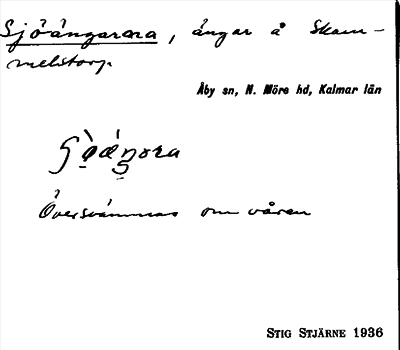 Sjöängarna, ängar å Skam-
melstorp
Åby sn, N. Möre hd, Kalmar län
Översvämmas om våren
STIG STJÄRNE 1936